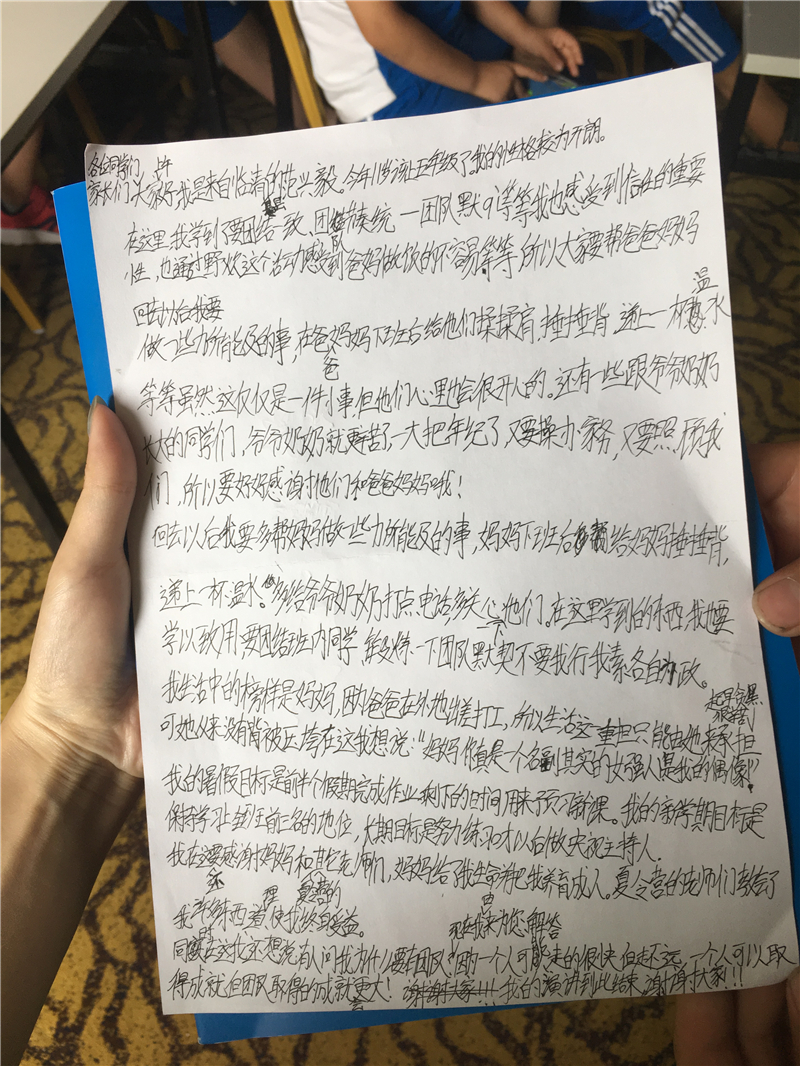 各位同学们 上午
家长们 大家好我是来自临清的范兴毅。今年11岁该上五年级了。我的性格较为开朗。
在这里我学到了要团结一致、团结 统一团队默契等等我也感受到信任的重要
性,也通过野炊这个活动感受到爸妈做饭的不容易等等,所以大家要帮爸爸妈妈
回去以后我要 温
做一些力所能及的事,在爸妈妈下班后给他们揉揉肩,捶捶背 递上一杯 水
爸
等等虽然这仅仅是一件小事但他们心里也会很开心的。还有一些跟爷爷奶奶
长大的同学们,爷爷奶奶就更苦了,一大把年纪了,又要操办家务,又要照顾我
们,所以要好好感谢他们和爸爸妈妈哦!
回去以后我要多帮妈妈做一些力所能及的事,妈妈下班后 给妈妈捶捶背,
递上一杯温水。多给爷爷奶奶打点电话多关心他们。在这里学到的东西,我也要
学以致用,要团结班内同学, 练一下团队默契不要我行我素,各自为政。
我生活中的榜样是妈妈,因为爸爸在外地出差打工,所以生活这一重担只能由她来承担
起早贪黑
可她从来没有背被压垮在这我想说:“妈妈你真是一个名副其实的女强人是我的偶像!”
我的暑假目标是前半个假期完成作业,剩下的时间用来预习新课。我的新学期目标是
保持学习上班前三名的地位,长期目标是努力练习口才以后做央视主持人.
我在这要感谢妈妈和其它老师们,妈妈给了我生命并把我养育成人。夏令营的老师们教会了
夏令营的
我许多东西道理使我终身受益。
现在我来为您解答
同时在这我还想说有人问我为什么要有团队?因为一个人可能走的很快但走不远,一个人可以取
得成就但团队取得的成就更大!谢谢大家!!!我的演讲到此结束,谢谢大家!!!